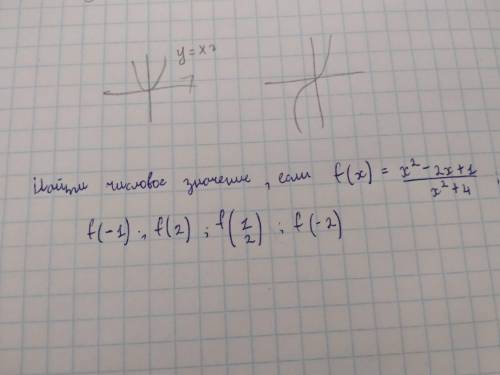 y=x²
Найти числовое значение, если f(x) = (x² - 2x + 1)/(x² + 4),
f(-1); f(2); f(1/2); f(-2)